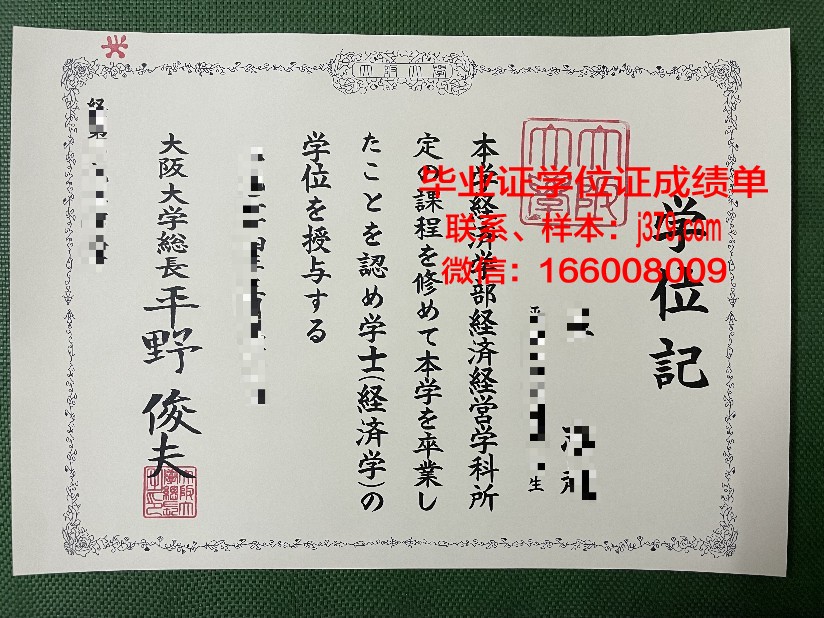 学位記
大阪大学
本学経済学部経済経営学科所
定の課程を修めて本学を卒業し
たことを認め学士(経済学)の
学位を授与する
大阪大学総長 平野俊夫
毕业证学位证成绩单
联系、样本：j379.com
微信：166008009
生